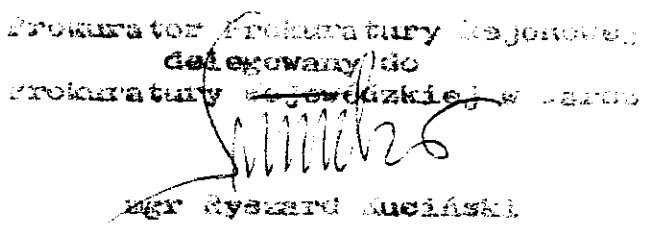 Prokurator Prokuratury Rejonowej
delegowany do
Prokuratury Wojewódzkiej w
mgr Ryszard Kuciński